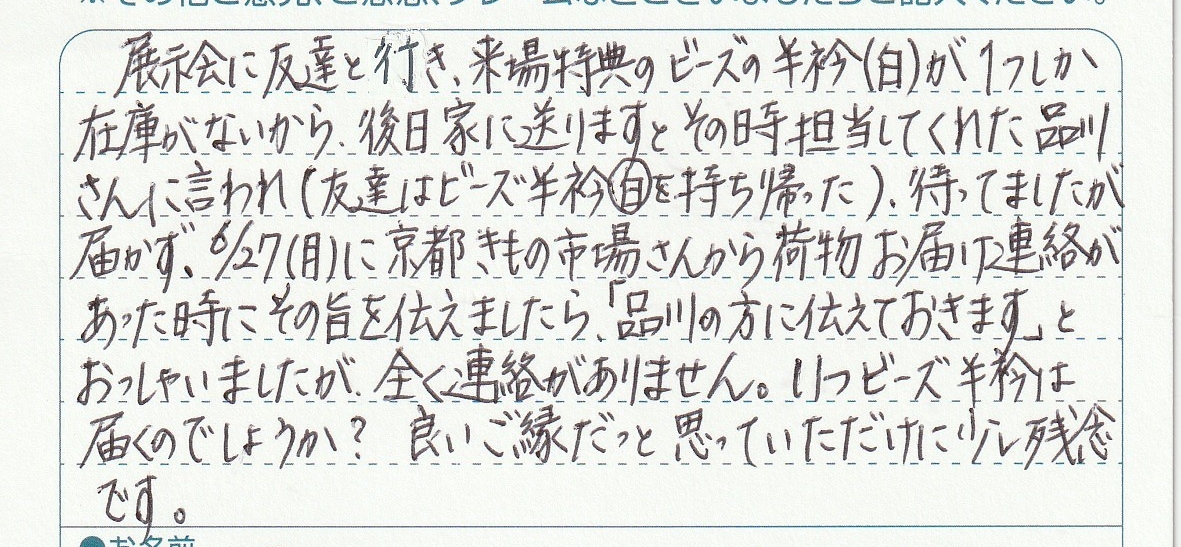 展示会に友達と行き、来場特典のビーズの半衿(白)が1つしか
在庫がないから、後日家に送りますとその時担当してくれた品川
さんに言われ(友達はビーズ半衿白を持ち帰った)、待ってましたが
届かず、6/27(月)に京都きもの市場さんから荷物お届け連絡が
あった時にその旨を伝えましたら、「品川の方に伝えておきます」と
おっしゃいましたが、全く連絡がありません。いつビーズ半衿は
届くのでしょうか? 良いご縁だっと思っていただけに少し残念
です。